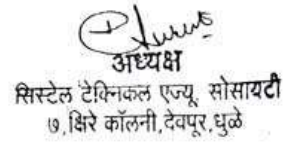 अध्यक्ष
सिस्टेल टेक्निकल एज्यू. सोसायटी
७, क्षिरे कॉलनी, देवपूर, धुळे